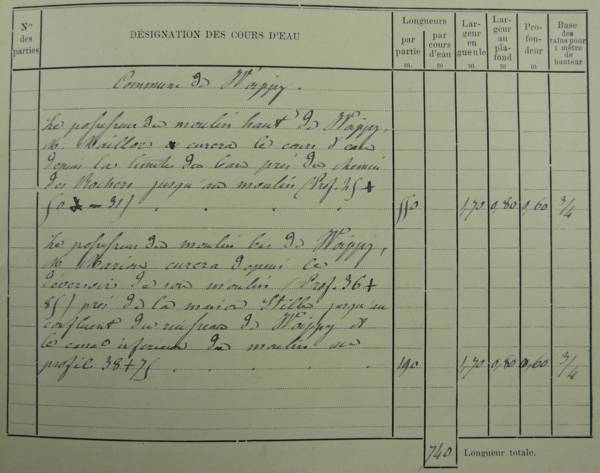 Nos des parties
DÉSIGNATION DES COURS D'EAU
Longueurs
par partie
m.
par cours d'eau
m.
Largeur en gueule
m
Largeur au plafond
m
Profondeur
m
Base des talus pour 1 mètre de hauteur
Commune de Woippy.
Le possesseur du moulin haut de Woippy,
M. Maillot curera le cours d'eau
depuis la limite du ban près du chemin
des Rochers jusqu'au moulin (Prof. 25 +
50 — 31) . . . . . 550 1,70 0,80 0,60 3/4
Le possesseur du moulin bas de Woippy,
M. Marion curera depuis le
déversoir de son moulin (Prof. 36 +
85) près de la maison Stille jusqu'au
confluent du ruisseau de Woippy et
le canal inférieur du moulin au
profil 38 + 75 . . . . . 190 1,70 0,80 0,60 3/4
740 Longueur totale.